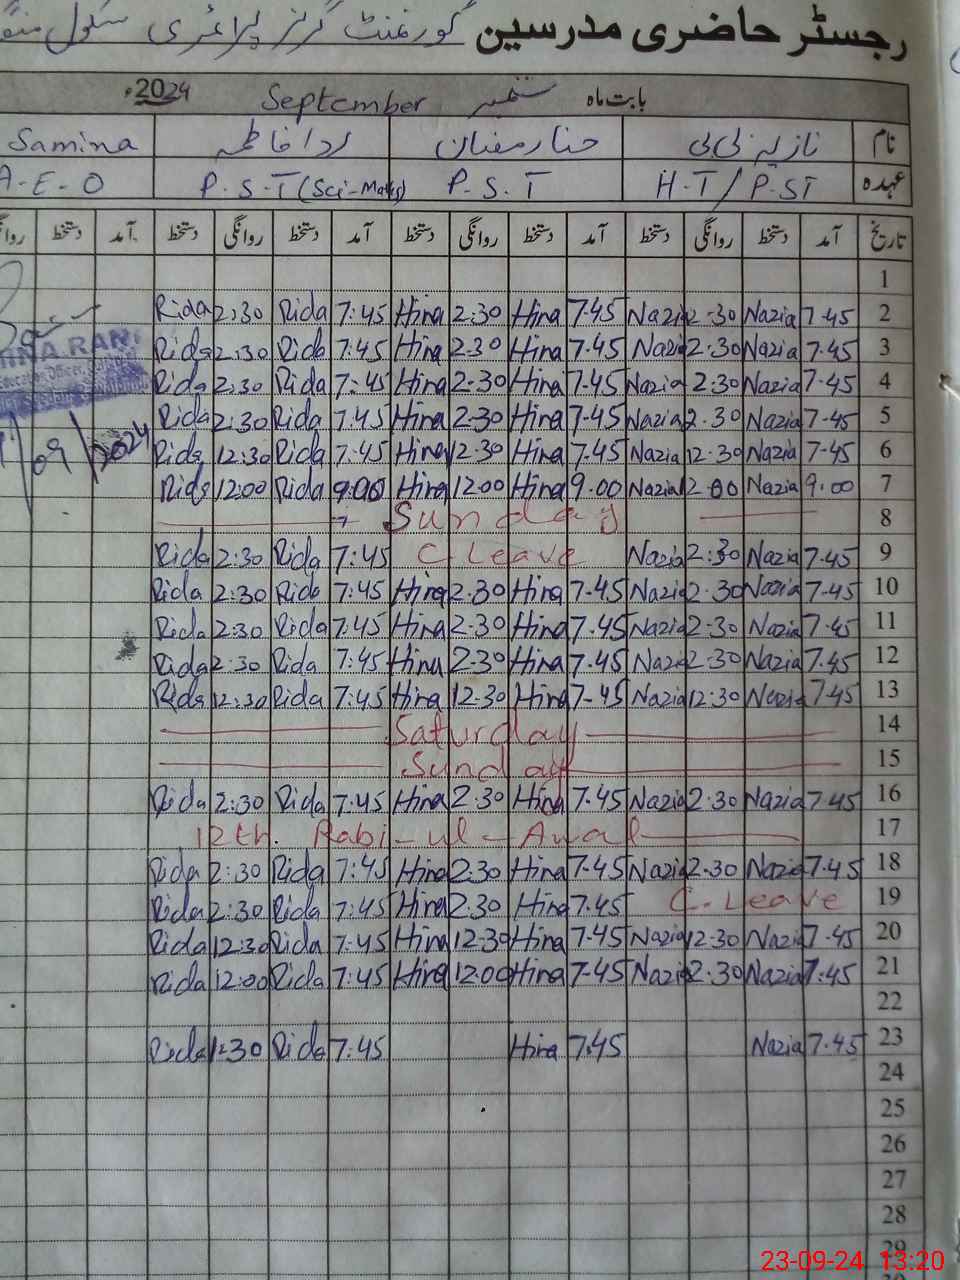 رجسٹر حاضری مدرسین گورنمنٹ گرلز پرائمری سکول
بابت ماہ ستمبر September 2024ء
نام نازیہ بی بی حنا رمضان ردا فاطمہ Samina
عہدہ H.T/P.ST P.S.T P.S.T (Sci-Maths) A-E-O
تاریخ آمد دستخط روانگی دستخط آمد دستخط روانگی دستخط آمد دستخط روانگی دستخط آمد دستخط
1
Rida 2:30 Rida 7:45 Hina 2:30 Hina 7.45 Nazia 2.30 Nazia 7.45 2
Rida 2:30 Rida 7:45 Hina 2.30 Hina 7.45 Nazia 2.30 Nazia 7.45 3
Rida 2:30 Rida 7:45 Hina 2.30 Hina 7.45 Nazia 2.30 Nazia 7.45 4
Rida 2:30 Rida 7:45 Hina 2.30 Hina 7.45 Nazia 2.30 Nazia 7.45 5
Rida 12:30 Rida 7:45 Hina 12.30 Hina 7.45 Nazia 12.30 Nazia 7.45 6
Rida 12:00 Rida 9:00 Hina 12.00 Hina 9.00 Nazia 12.00 Nazia 9.00 7
Sunday 8
Rida 2:30 Rida 7:45 C.Leave Nazia 2:30 Nazia 7.45 9
Rida 2:30 Rida 7:45 Hina 2.30 Hina 7.45 Nazia 2.30 Nazia 7.45 10
Rida 2:30 Rida 7:45 Hina 2.30 Hina 7.45 Nazia 2.30 Nazia 7.45 11
Rida 2:30 Rida 7:45 Hina 2.30 Hina 7.45 Nazia 2.30 Nazia 7.45 12
Rida 12:30 Rida 7:45 Hina 12.30 Hina 7.45 Nazia 12.30 Nazia 7.45 13
Saturday 14
Sunday 15
Rida 2:30 Rida 7:45 Hina 2.30 Hina 7.45 Nazia 2.30 Nazia 7.45 16
12th. Rabi-ul-Awal 17
Rida 2:30 Rida 7:45 Hina 2:30 Hina 7.45 Nazia 2.30 Nazia 7.45 18
Rida 2:30 Rida 7:45 Hina 2.30 Hina 7.45 C.Leave 19
Rida 12:30 Rida 7:45 Hina 12.30 Hina 7.45 Nazia 12.30 Nazia 7.45 20
Rida 12:00 Rida 7:45 Hina 12.00 Hina 7.45 Nazia 2.30 Nazia 7.45 21
22
Rida 1:30 Rida 7:45 Hina 7.45 Nazia 7.45 23
24
25
26
27
28
29
RANI
/09/2024
23-09-24 13:20